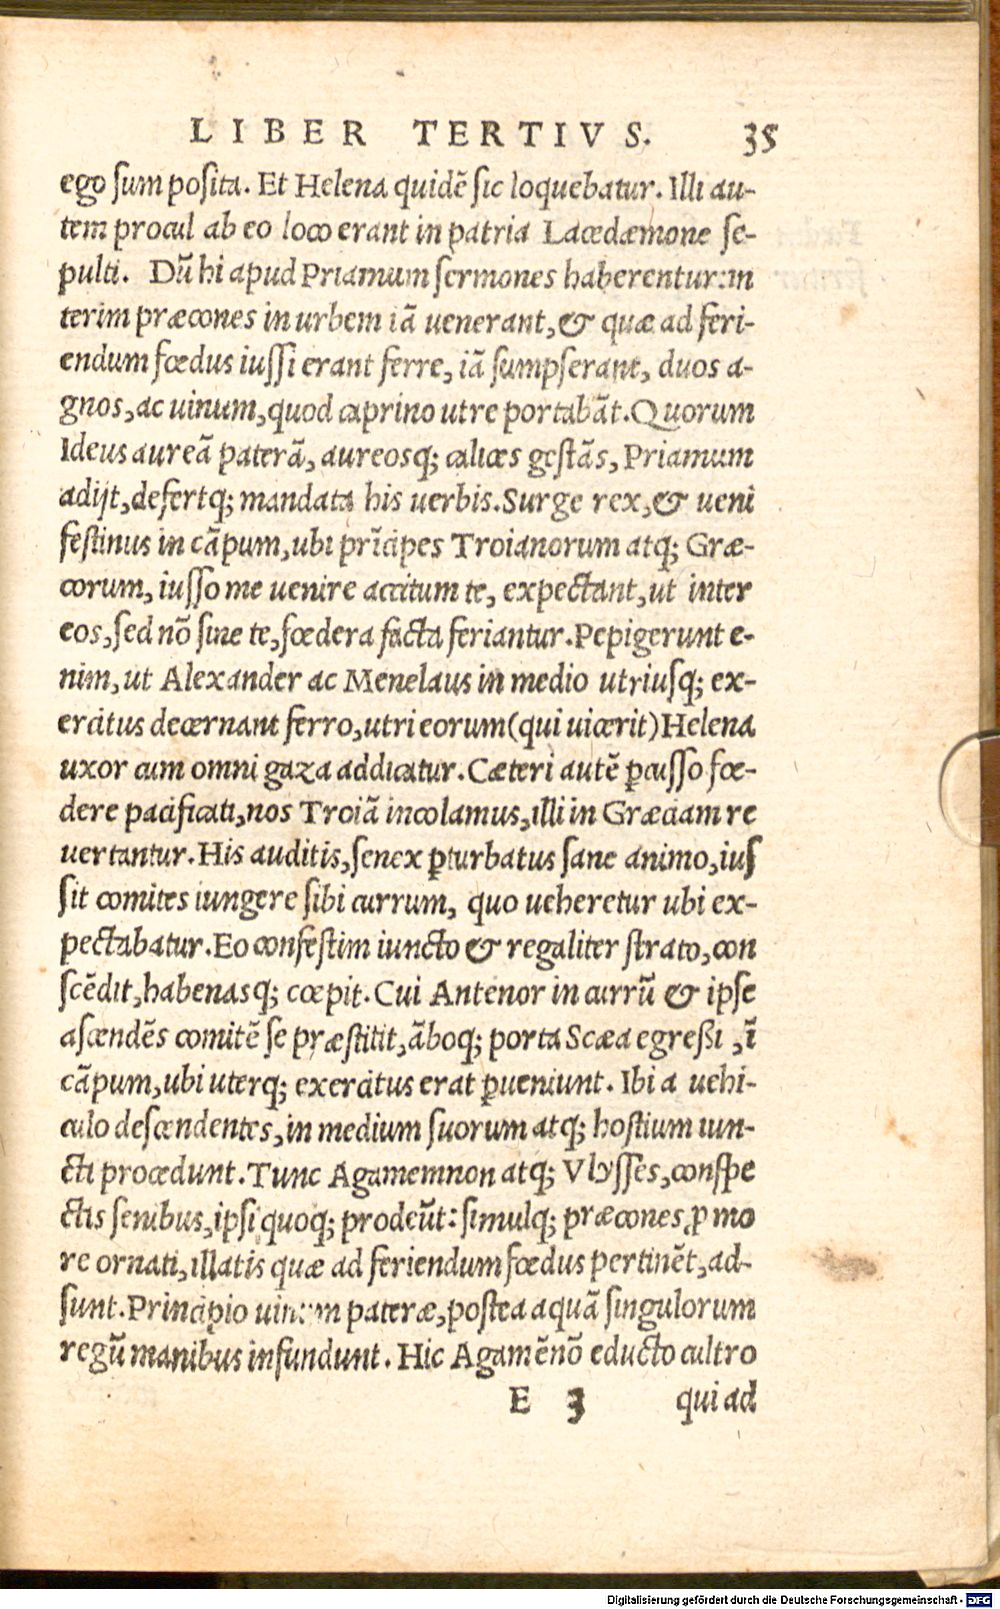 LIBER TERTIVS. 35
ego sum posita. Et Helena quidē sic loquebatur. Illi au-
tem procul ab eo loco erant in patria Lacedæmone se-
pulti. Dū hi apud Priamum sermones haberentur: in
terim præcones in urbem iā venerant, & quæ ad feri-
endum fœdus iussi erant ferre, iā sumpserant, duos a-
gnos, ac uinum, quod caprino utre portabāt. Quorum
Ideus aureā paterā, aureosq; calices gestās, Priamum
adijt, defertq; mandata his uerbis. Surge rex, & ueni
festinus in cāpum, ubi prīcipes Troianorum atq; Græ-
corum, iusso me uenire accitum te, expectant, ut inter
eos, sed nō sine te, fœdera facta feriantur. Pepigerunt e-
nim, ut Alexander ac Menelaus in medio utriusq; ex-
ercitus decernant ferro, utri eorum (qui uicerit) Helena
uxor cum omni gaza addicatur. Cæteri autē ꝑcusso fœ-
dere pacificati, nos Troiā incolamus, illi in Græciam re
uertantur. His auditis, senex ꝑturbatus sane animo, ius
sit comites iungere sibi currum, quo ueheretur ubi ex-
pectabatur. Eo confestim iuncto & regaliter strato, con
scēdit, habenasq; cœpit. Cui Antenor in currū & ipse
ascendēs comitē se præstitit, āboq; porta Scæa egreßi, ī
cāpum, ubi uterq; exercitus erat ꝑueniunt. Ibi a uehi-
culo descendentes, in medium suorum atq; hostium iun-
cti procedunt. Tunc Agamemnon atq; Vlysses, conspe
ctis senibus, ipsi quoq; prodeūt: simulq; præcones ꝓ mo
re ornati, illatis quæ ad feriendum fœdus pertinēt, ad-
sunt. Principio uinum pateræ, postea aquā singulorum
regū manibus infundunt. Hic Agamēnō educto cultro
E 3 qui ad
Digitalisierung gefördert durch die Deutsche Forschungsgemeinschaft - DFG